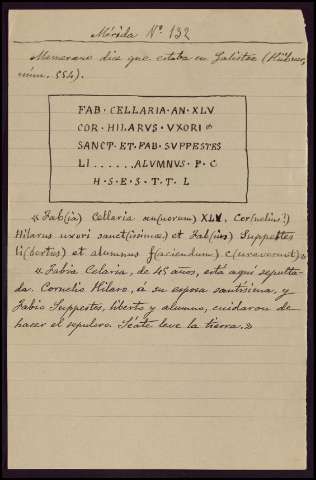 Mérida Nº 132
Memorano dice que estaba en Galisteo (Hübner,
núm. 554).
FAB · CELLARIA · AN · XLV
COR · HILARVS · VXORI
SANCT · ET · FAB · SVPPESTES
LI . . . . . . ALVMNVS · P · C
H · S · E · S · T · T · L
« Fab(ia) Cellaria an(norum) XLV. Cor(nelius?)
Hilarus uxori sanct(issimae) et Fab(ius) Suppestes
li(bertus) et alumnus f(aciendum) c(uraverunt) »
« Fabia Celaria, de 45 años, está aquí sepulta-
da. Cornelio Hilaro, á su esposa santísima, y
Fabio Suppestes, liberto y alumno, cuidaron de
hacer el sepulcro. Séate leve la tierra. »